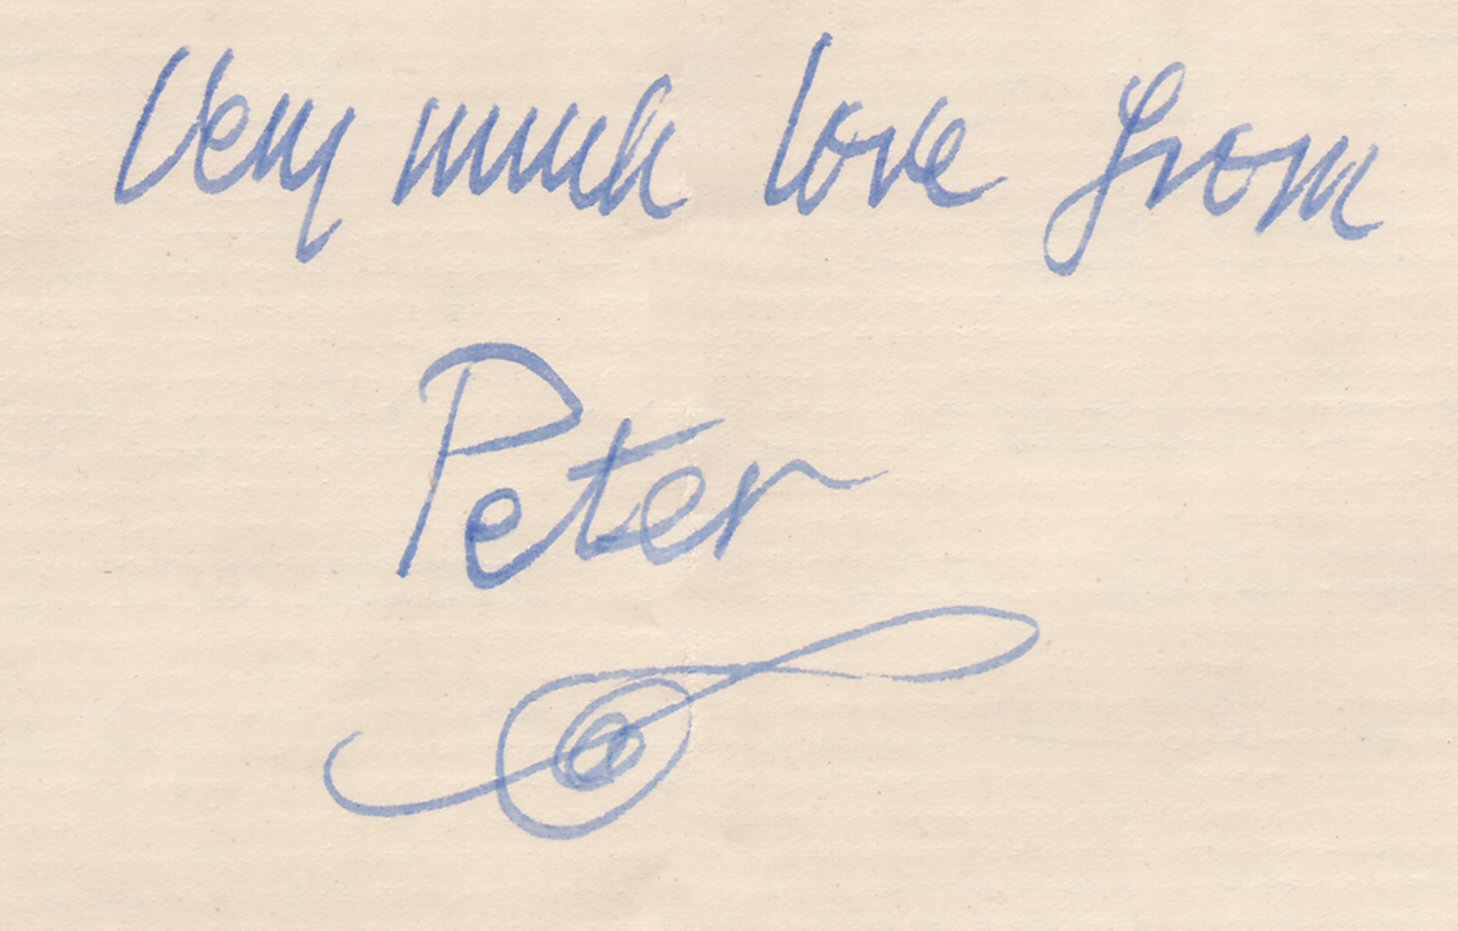 Very much love from
Peter